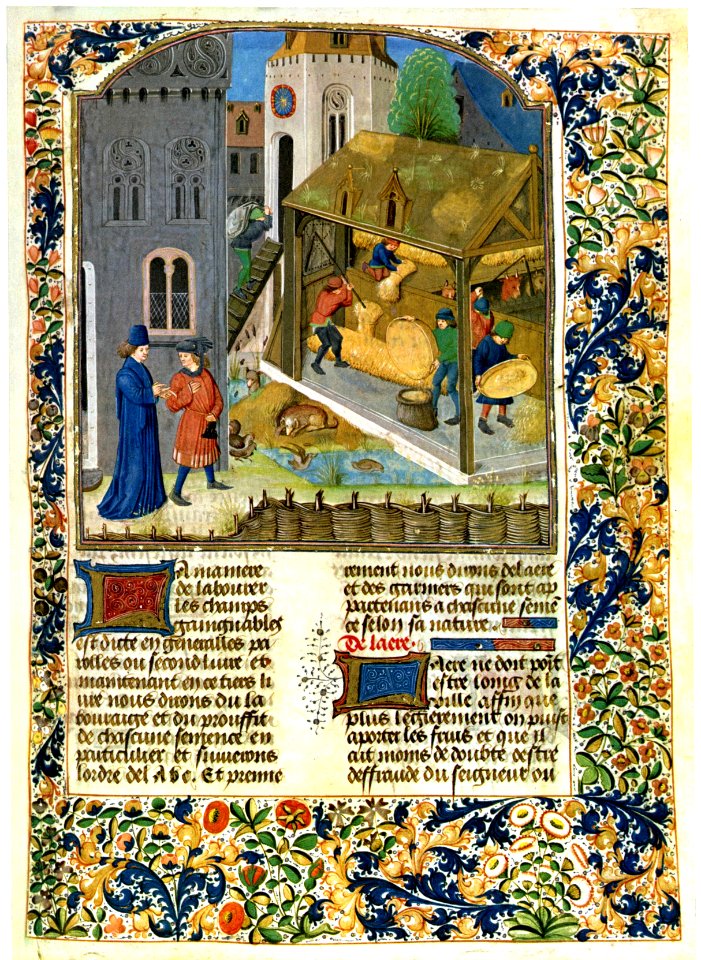 La maniere
de labourer
les champs
gaingnables
est dicte en generalles pa
rolles ou second liure et
maintenant en ce tiers li
ure nous dirons du la
bourage et du prouffit
de chascune semence en
particulier et suiurons
lordre del A b c. Et premie
rement nous dirons de laere
et des garniers qui sont ap
partenans a chascune seme
ce selon sa nature.
De laere.
Laere ne doit point
estre loing de la
ville affin que
plus legierement on puist
aporter les fruis et que il
ait moins de doubte destre
deffraude du seigneur ou